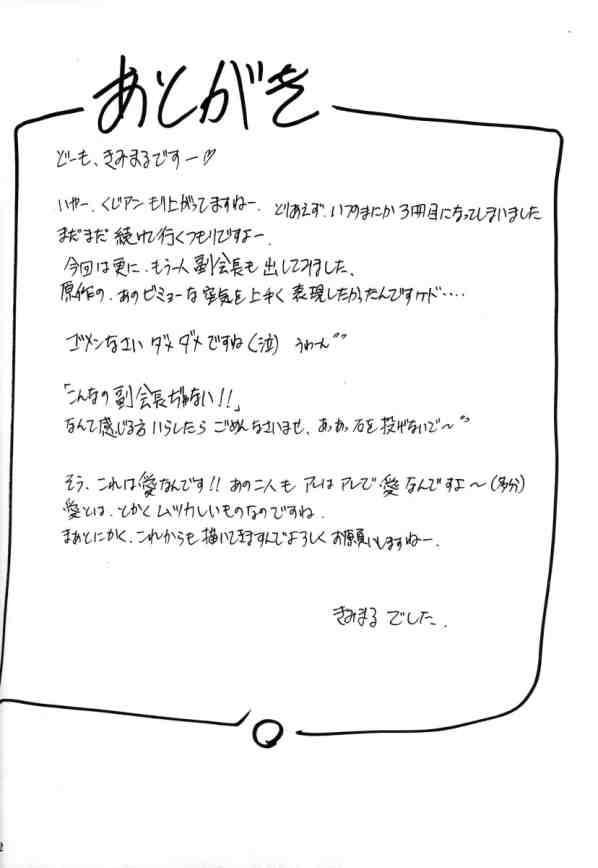 あとがき
どーも、きみまるですー♡
いやー、くじアンもり上がってますねー。とりあえず、いつのまにか3冊目になってしまいました
まだまだ続けて行くつもりですよー。
今回は更に、もう一人副会長も出してみました、
原作の、あのビミョーな空気を上手く表現したかったんですケド‥‥
ゴメンなさいダメダメですね(泣) うわーん〃
「こんなの副会長ぢゃない!!」
なんて感じる方いらしたらごめんなさいませ、あぁっ石を投げないで〜〃
そう、これは愛なんです!! あの二人もアレはアレで愛なんですよ〜(多分)
愛とは、とかくムツカしいものなのですね。
まあとにかく、これからも描いてきますんでよろしくお願いしますねー。
きみまるでした。
2